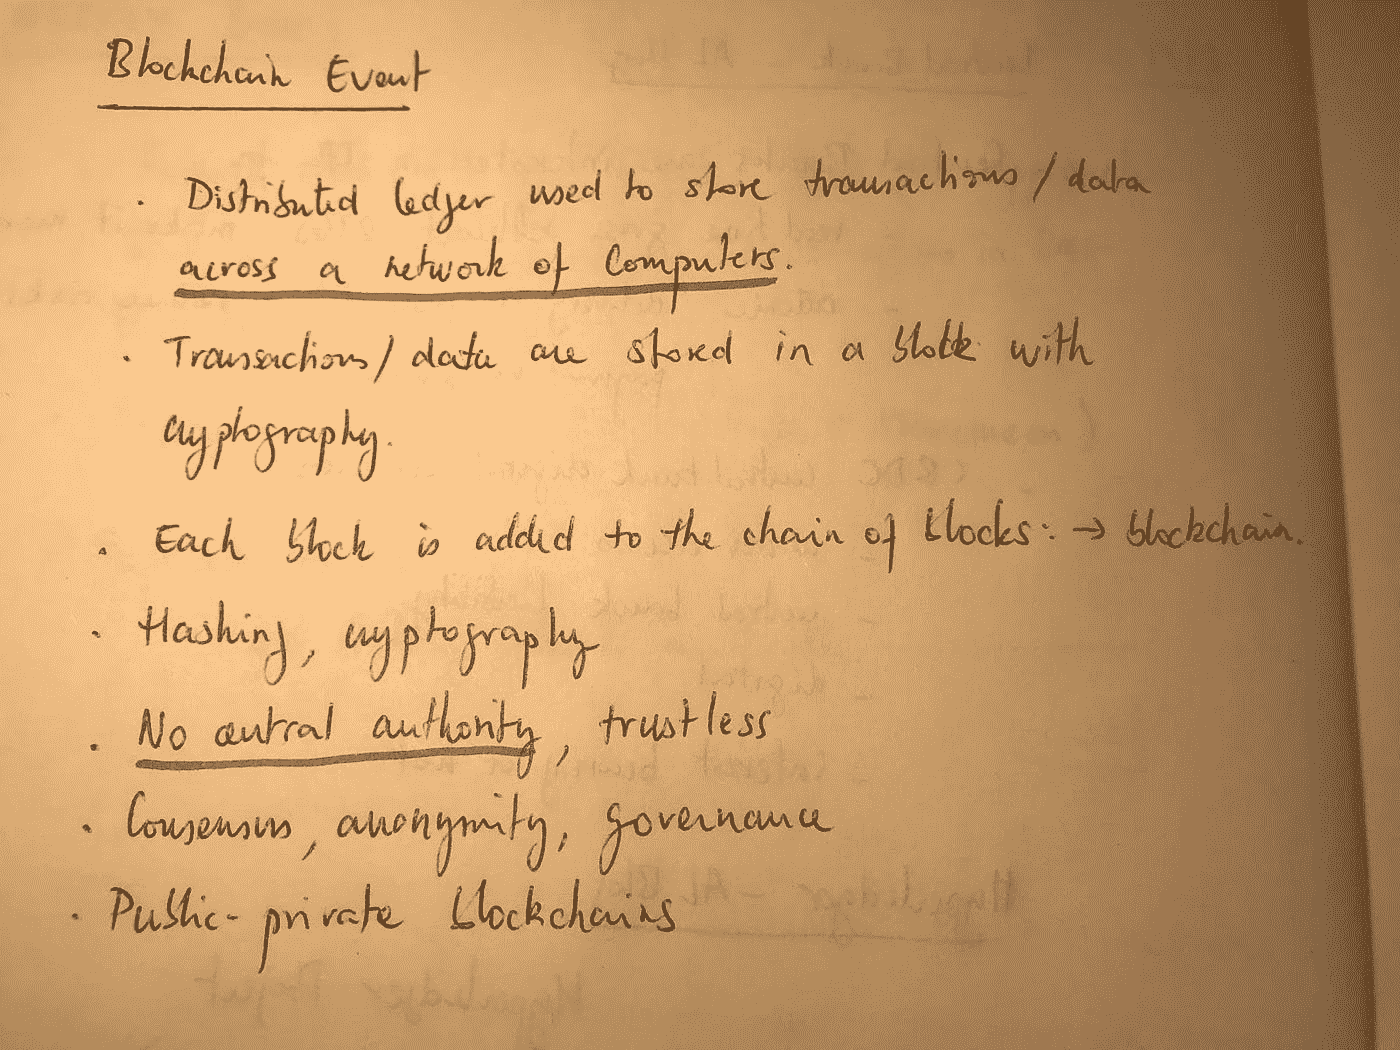 Blockchain Event
· Distributed ledger used to store transactions/data
across a network of Computers.
· Transactions/data are stored in a block with
cryptography.
· Each block is added to the chain of blocks: → blockchain.
· Hashing, cryptography
· No central authority, trustless
· Consensus, anonymity, governance
· Public-private blockchains